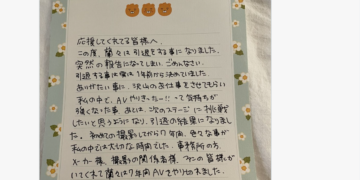 応援してくれてる皆様へ
この度、蘭々は引退をする事になりました。
突然の報告になってしまい、ごめんなさい。
引退する事は実は1年前から決めていました。
ありがたい事に、沢山のお仕事をさせてもらい
私の中で、AVやりきったー!!って気持ちが
強くなった事、あとは、次のステージに挑戦
したいと思うようになり、引退の結果になりまし
た。初めての撮影してから7年間、色々な事が
私の中では大切な時間でした。事務所の方、
メーカー様、撮影の関係者様、ファンの皆様が
いてくれて蘭々は7年間AVをやり切れました。